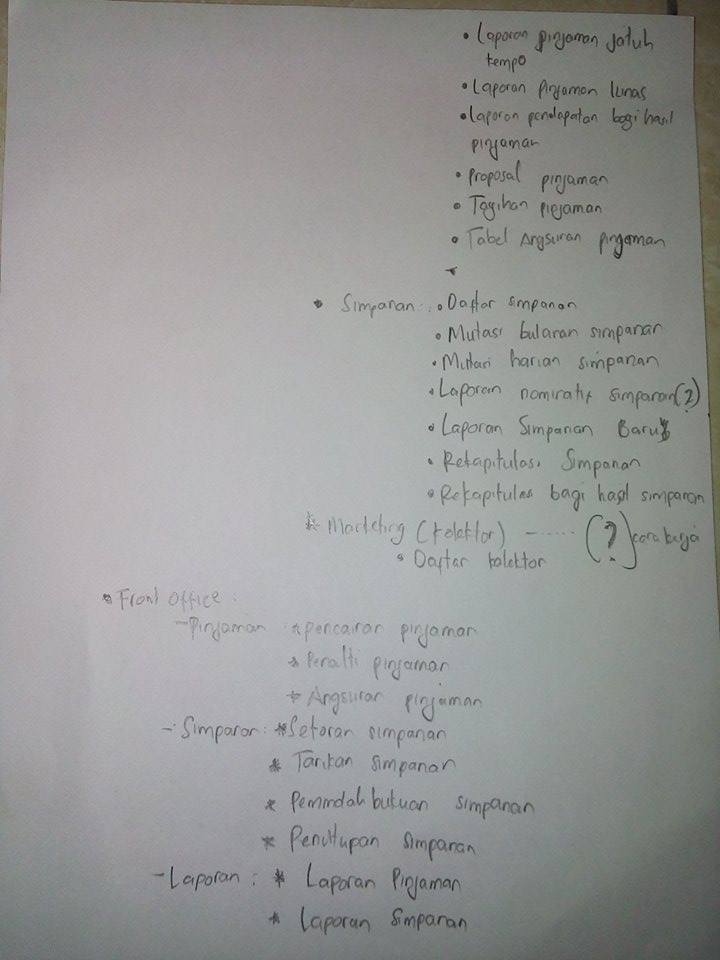 • Laporan pinjaman jatuh
tempo
• Laporan Pinjaman lunas
• Laporan pendapatan bagi hasil
pinjaman
• Proposal pinjaman
• Tagihan pinjaman
• Tabel Angsuran pinjaman
• Simpanan : • Daftar simpanan
• Mutasi bulanan simpanan
• Mutasi harian simpanan
• Laporan nominatif simpanan (?)
• Laporan Simpanan Baru
• Rekapitulasi Simpanan
• Rekapitulas bagi hasil simpanan
* Marketing (kolektor) ------ (?) cara kerja
• Daftar kolektor
• Front office :
- Pinjaman : * pencairan pinjaman
* Penalti pinjaman
* Angsuran pinjaman
- Simpanan : * Setoran simpanan
* Tarikan simpanan
* Pemindah bukuan simpanan
* Penutupan simpanan
- Laporan : * Laporan Pinjaman
* Laporan Simpanan